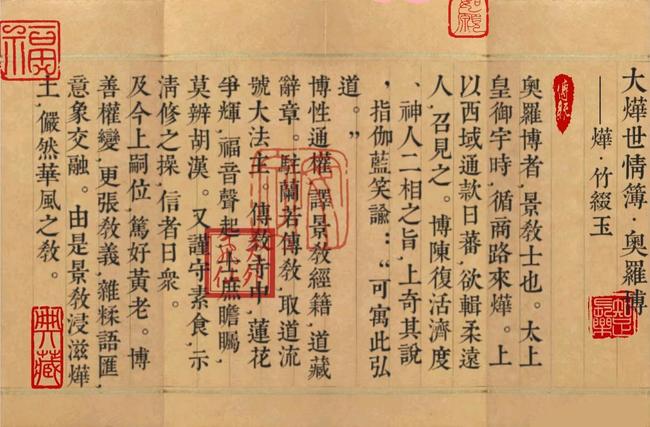 大燁世情簿·奧羅博
——燁·竹綴玉
奧羅博者，景敎士也。太上
皇御宇時，循商路來燁。上
以西域通款日蕃，欲輯柔遠
人，召見之。博陳復活濟度
、神人二相之旨，上奇其說
，指伽藍笑諭：“可寓此弘
道。”
博性通權，譯景敎經籍，道藏
辭章。駐蘭若傳敎，取道流
號大法主。傳敎寺中，蓮花
爭輝，福音聲起，士庶瞻矚，
莫辨胡漢。又謹守素食，示
淸修之操，信者日衆。
及今上嗣位，篤好黃老。博
善權變，更張敎義，雜糅語匯，
意象交融。由是景敎浸滋燁
土，儼然華風之敎。
典藏